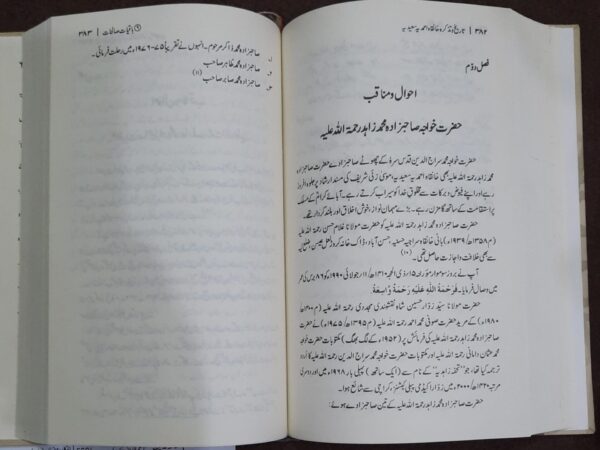 ۳۸۲ | تاریخ و تذکرہ خانقاہ احمدیہ سعیدیہ
فصل دوم
احوال و مناقب
حضرت خواجہ صاحبزادہ محمد زاہد رحمۃ اللہ علیہ
حضرت خواجہ محمد سراج الدین قدس سرہٗ کے چھوٹے صاحبزادے حضرت صاحبزادہ
محمد زاہد رحمۃ اللہ علیہ بھی خانقاہ احمدیہ سعیدیہ، موسیٰ زئی شریف کی مسند ارشاد پر جلوہ افروز
رہے اور اپنے فیوض و برکات سے مخلوقِ خدا کو سیراب کرتے رہے۔ آبائے کرامؒ کے مسلک
پر استقامت کے ساتھ گامزن رہے۔ بڑے مہمان نواز، خوش اخلاق اور بلند کردار تھے۔
حضرت صاحبزادہ محمد زاہد رحمۃ اللہ علیہ کو حضرت مولانا غلام حسن رحمۃ اللہ علیہ
(م ۱۳۵۸ھ/۱۹۳۹ء) بانی خانقاہ سراجیہ حسنیہ، حسن آباد، ڈاک خانہ کروڑ لعل عیسن، ضلع لیہ
سے بھی خلافت و اجازت حاصل تھی۔(۱۰)
آپ نے بروز سوموار مؤرخہ ۱۵ ذی الحجہ ۱۴۱۰ھ/۱۱ جولائی ۱۹۹۰ء کو ۸۶ برس کی عمر
میں وصال فرمایا۔ فَرَحْمَةُ اللّٰهِ عَلَيْهِ رَحْمَةً وَّاسِعَةً
حضرت مولانا سید زوّار حسین شاہ نقشبندی مجددی رحمۃ اللہ علیہ (م ۱۴۰۰ھ/
۱۹۸۰ء) کے مرید حضرت صوفی محمد احمد رحمۃ اللہ علیہ (م ۱۳۹۵ھ/۱۹۷۵ء) نے حضرت
صاحبزادہ محمد زاہد رحمۃ اللہ علیہ کی فرمائش پر (۱۹۵۲ء کے لگ بھگ) مکتوبات حضرت خواجہ
محمد عثمان دامانی رحمۃ اللہ علیہ اور مکتوبات حضرت خواجہ محمد سراج الدین رحمۃ اللہ علیہ کا اُردو
ترجمہ کیا تھا، جو ”تحفہ زاہدیہ“ کے نام سے (ایک ساتھ) پہلی بار ۱۹۶۸ء میں اور دوسری
مرتبہ ۱۴۲۰ھ/۲۰۰۰ء میں زوّار اکیڈمی پبلی کیشنز، کراچی سے شائع ہوا۔
حضرت صاحبزادہ محمد زاہد رحمۃ اللہ علیہ کے تین صاحبزادے ہوئے:
باقیات صالحات | ۳۸۳
صاحبزادہ محمد ذاکر مرحوم۔ انہوں نے تقریباً ۷۵-۱۹۷۶ء میں رحلت فرمائی۔
صاحبزادہ محمد طاہر صاحب
صاحبزادہ محمد صابر صاحب(۱۱)